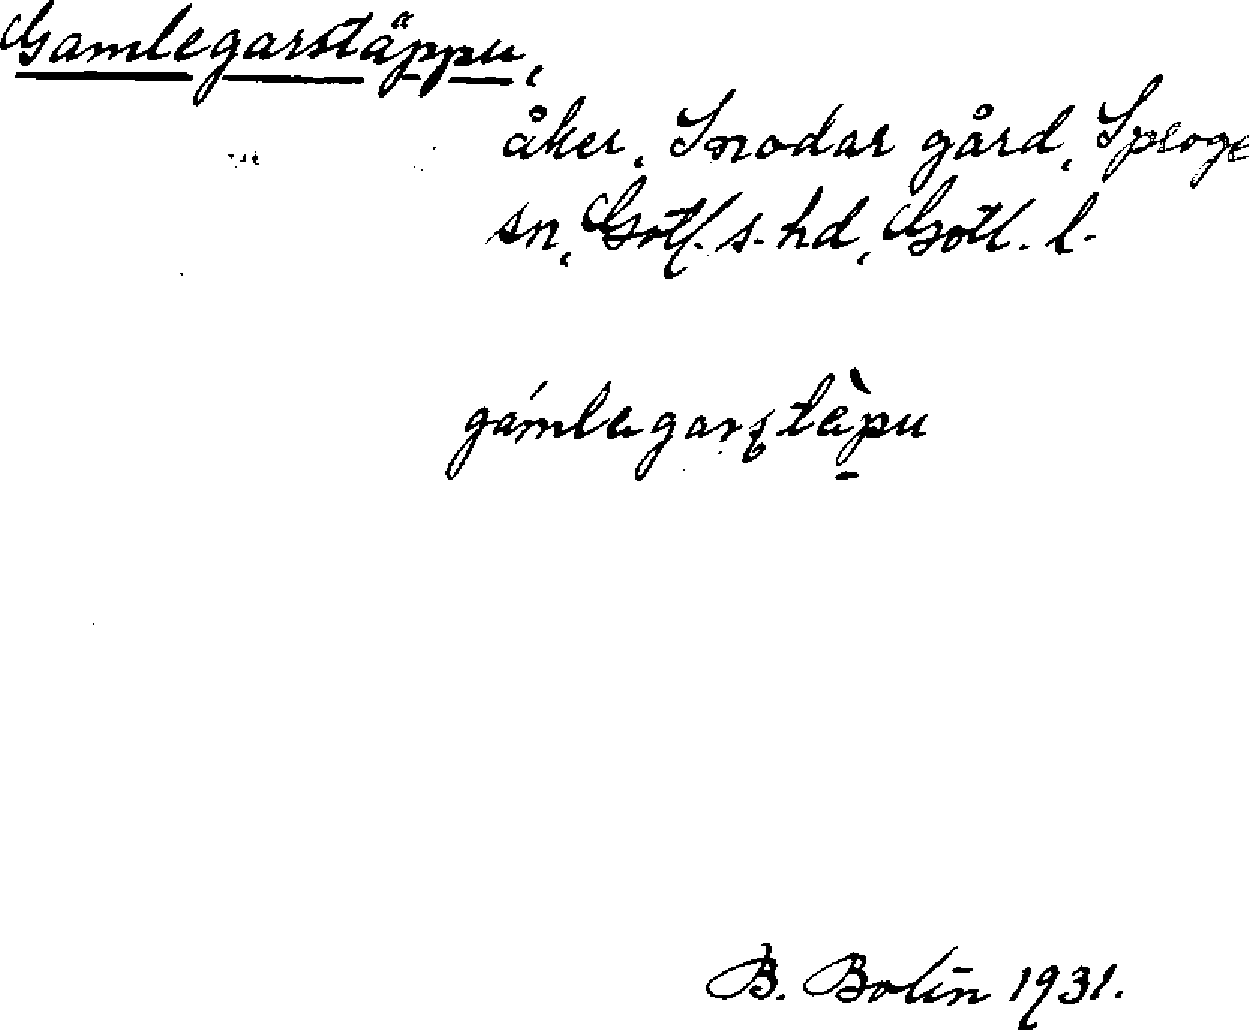 Gamlegarstäppu,
åker, Snodar gård, Sproge
sn, Gotl. s. hd, Gotl. l.
gámlegarstɛ̀pu
B. Bolin 1931.